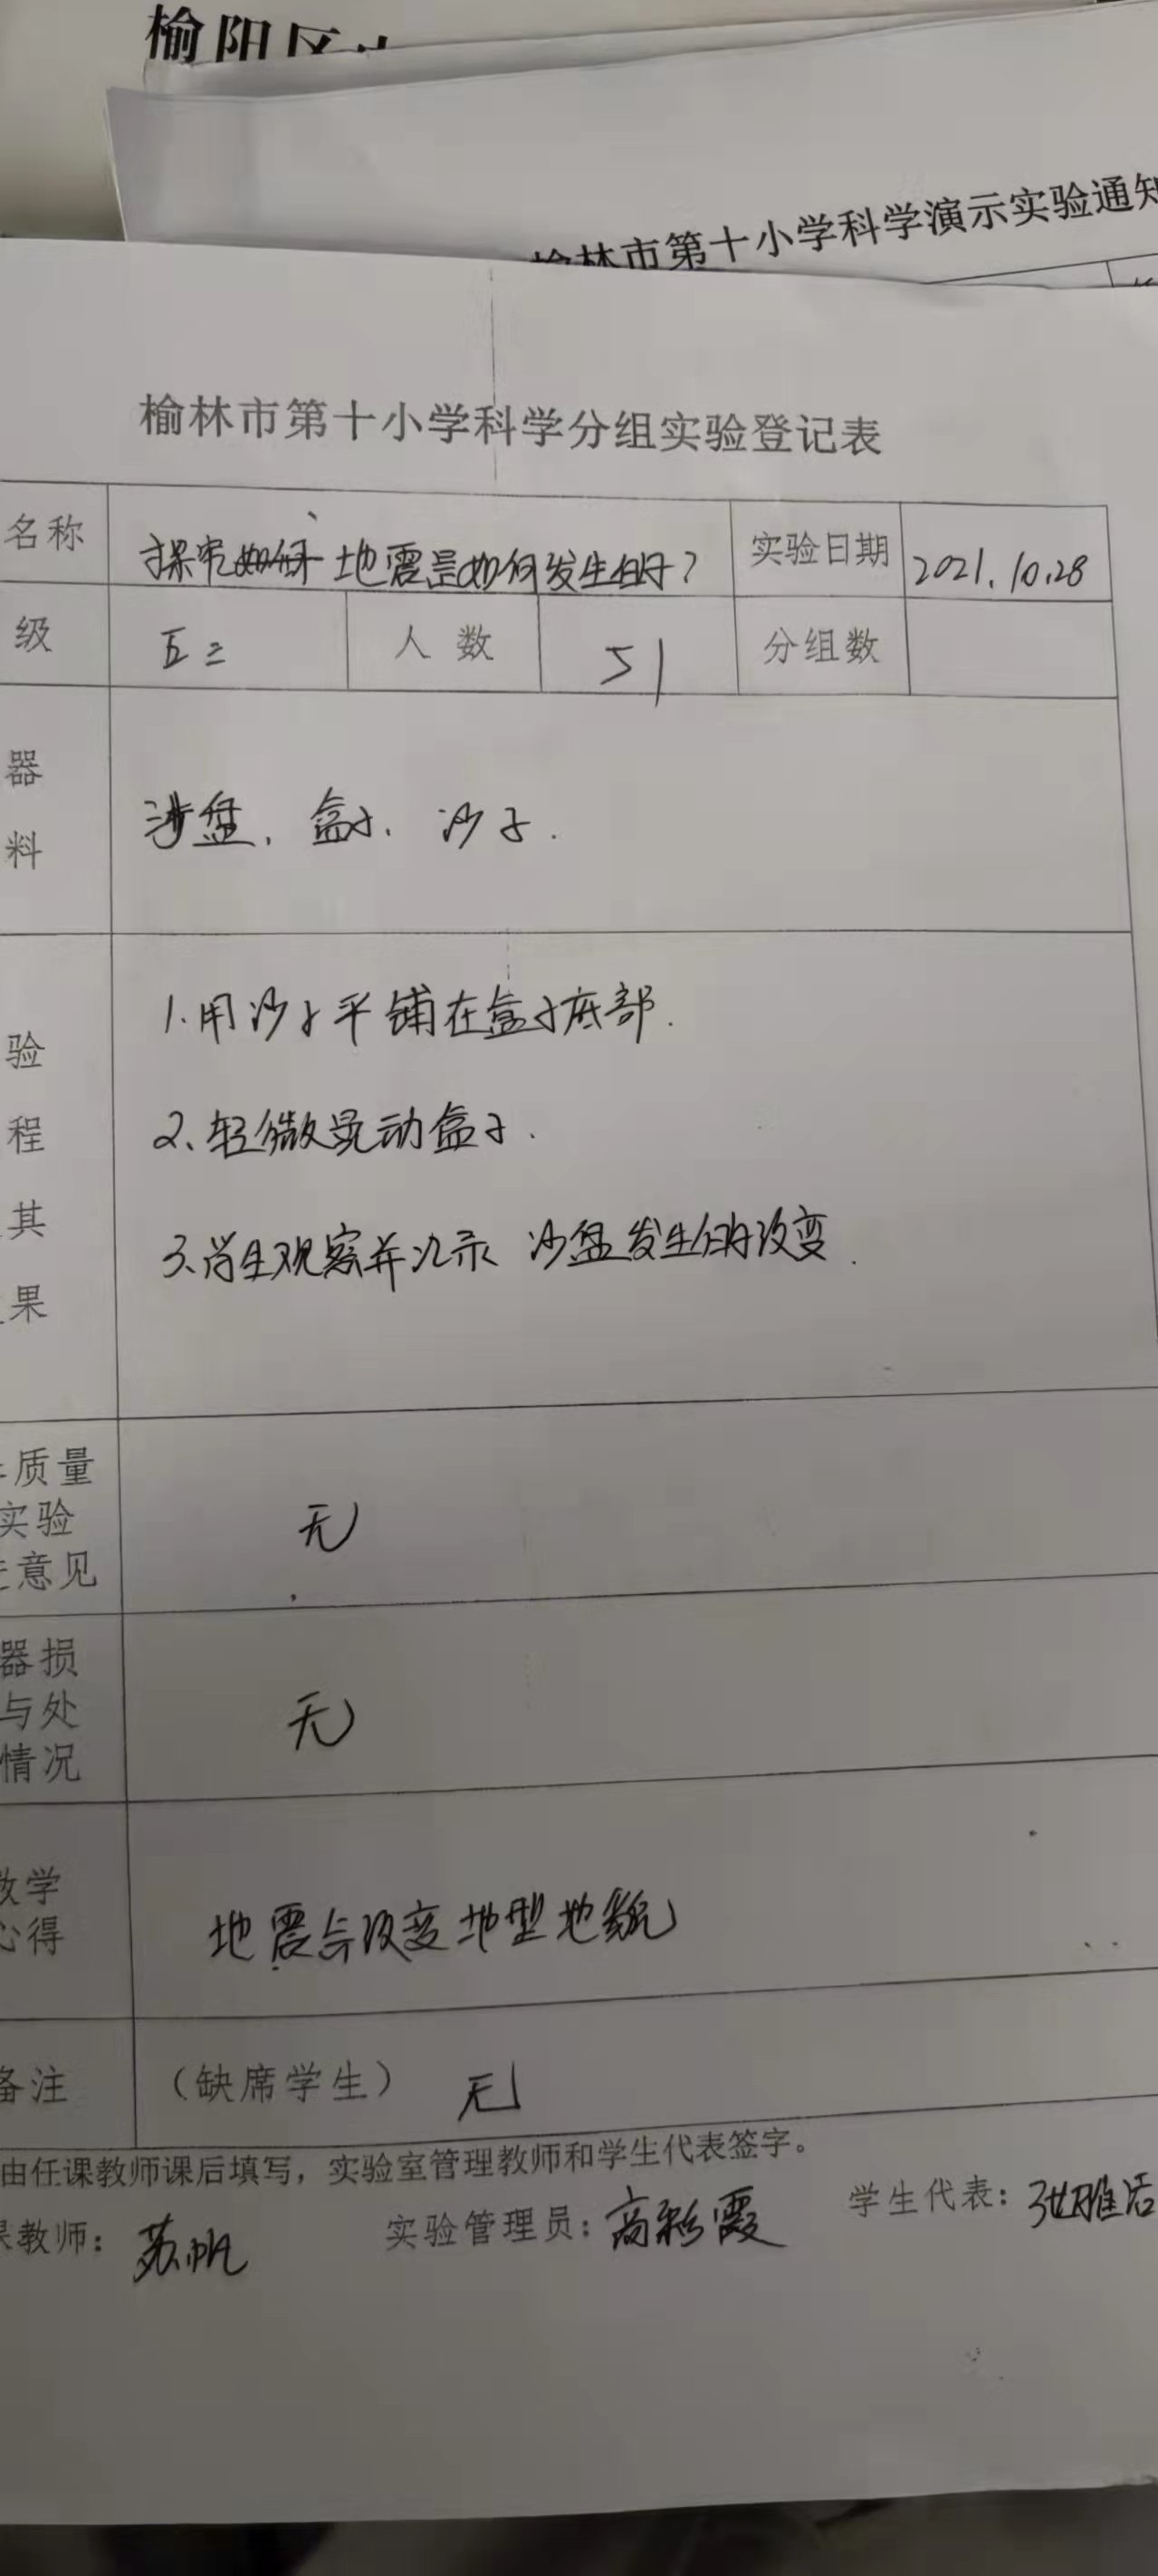 榆阳区
榆林市第十小学科学演示实验通知
榆林市第十小学科学分组实验登记表
名称 探究 地震是如何发生的? 实验日期 2021.10.28
级 五三 人数 51 分组数
器
料
沙盘、盒子、沙子.
验
程
其
果
1.用沙子平铺在盒子底部.
2、轻微晃动盒子.
3、学生观察并记录 沙盘发生的改变.
质量
实验
意见
无
器损
与处
情况
无
教学
心得
地震会改变地型地貌
备注 (缺席学生) 无
由任课教师课后填写,实验室管理教师和学生代表签字。
课教师: 苏帆 实验管理员: 高彩霞 学生代表: 张雅洁